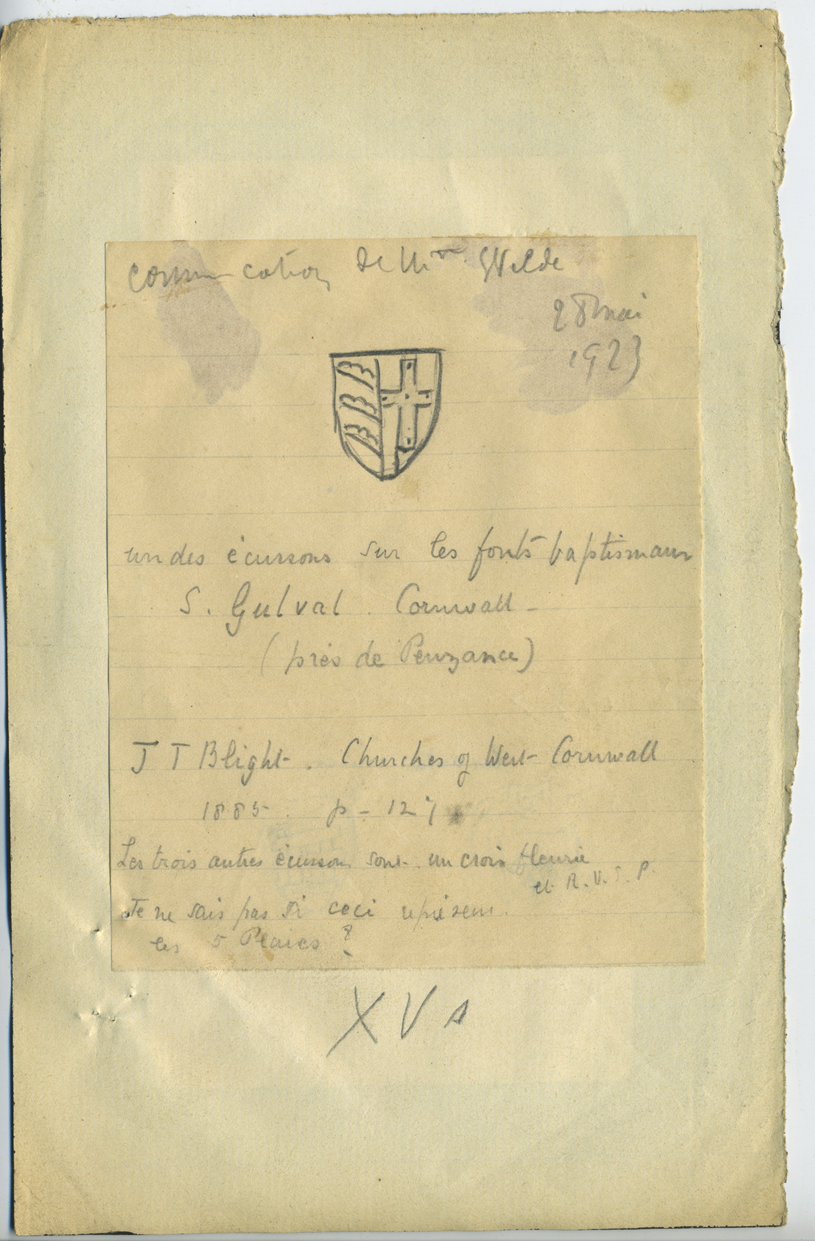 communication de Mme Wilde
28 mai
1923
un des écussons sur les fonts baptismaux
S. Gulval. Cornwall -
(près de Penzance)
J T Blight. Churches of West Cornwall
1885. p - 127
Les trois autres écussons sont un croix fleurie
et R. V. S. P.
Je ne sais pas si ceci représen.
les 5 Plaies ?
XV s